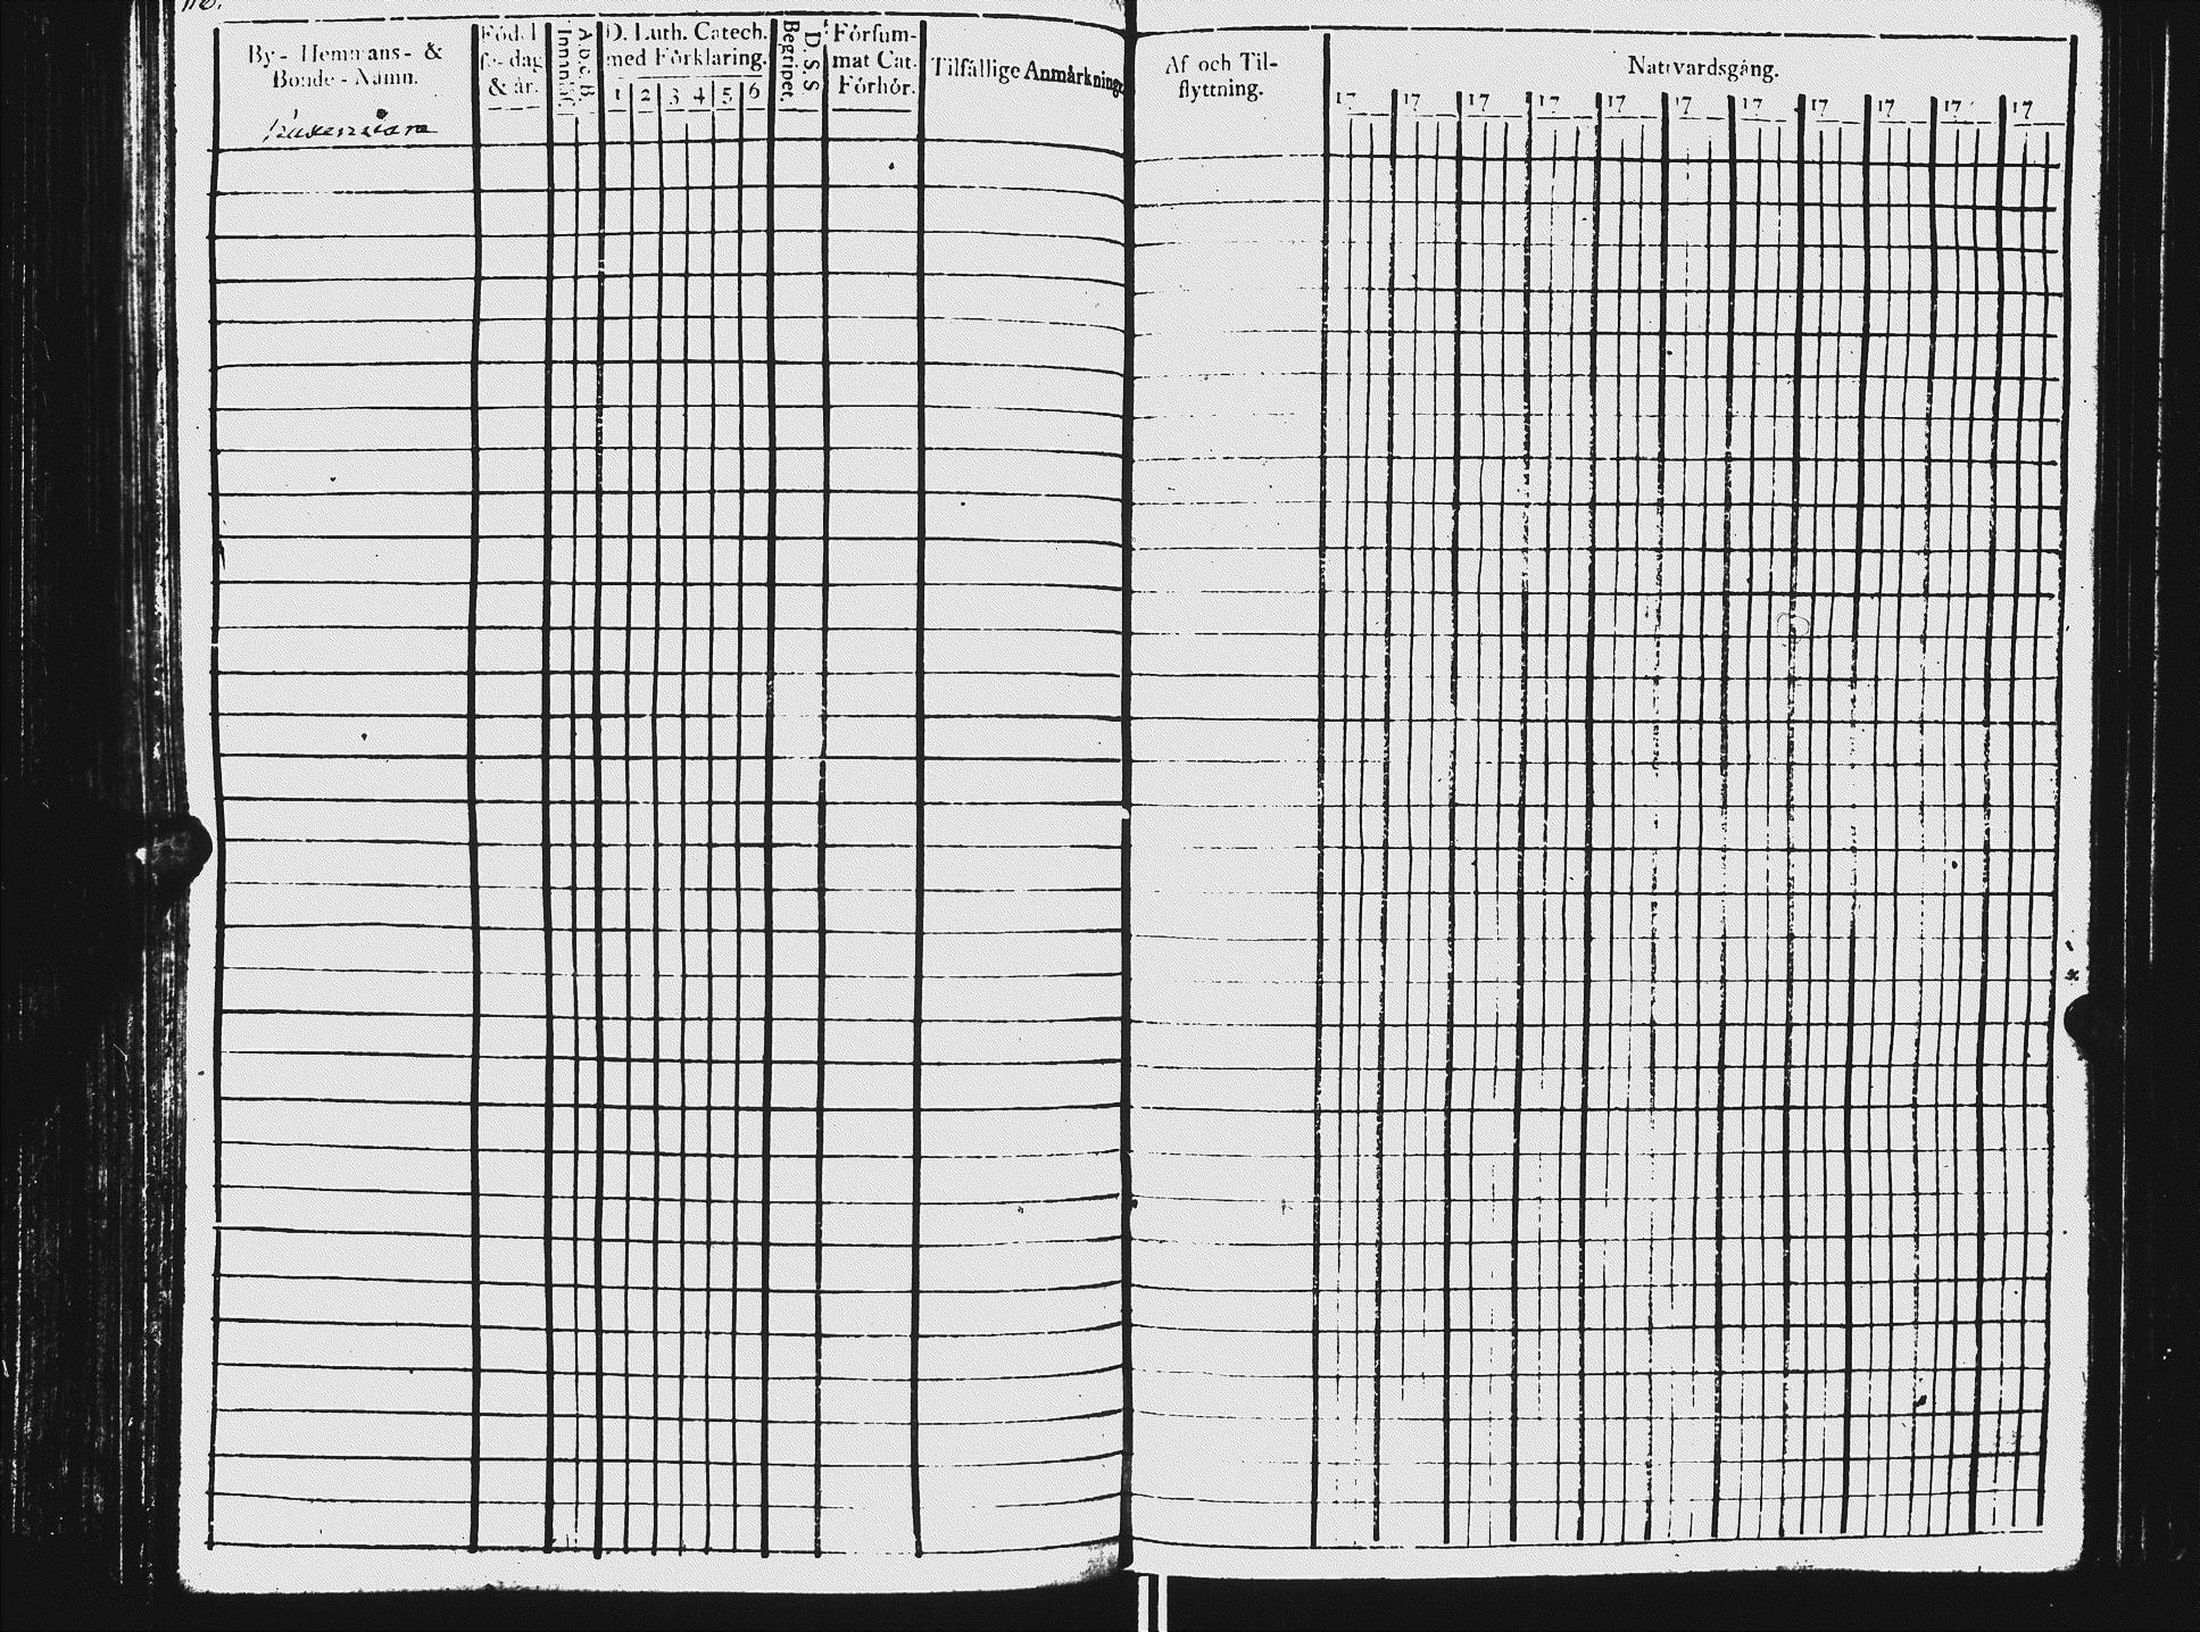 116.
By- Hemmans- &
Bonde-Namn.
Födel
se-dag
& år.
A.b.c.B.
Innanläs.
D. Luth. Catech.
med Förklaring.
1 2 3 4 5 6
D. S. S.
Begripet.
Försum-
mat Cat.
Förhör.
Tilfällige Anmårkning.
Af och Til-
flyttning.
Nattvardsgång.
17 17 17 17 17 17 17 17 17 17 17